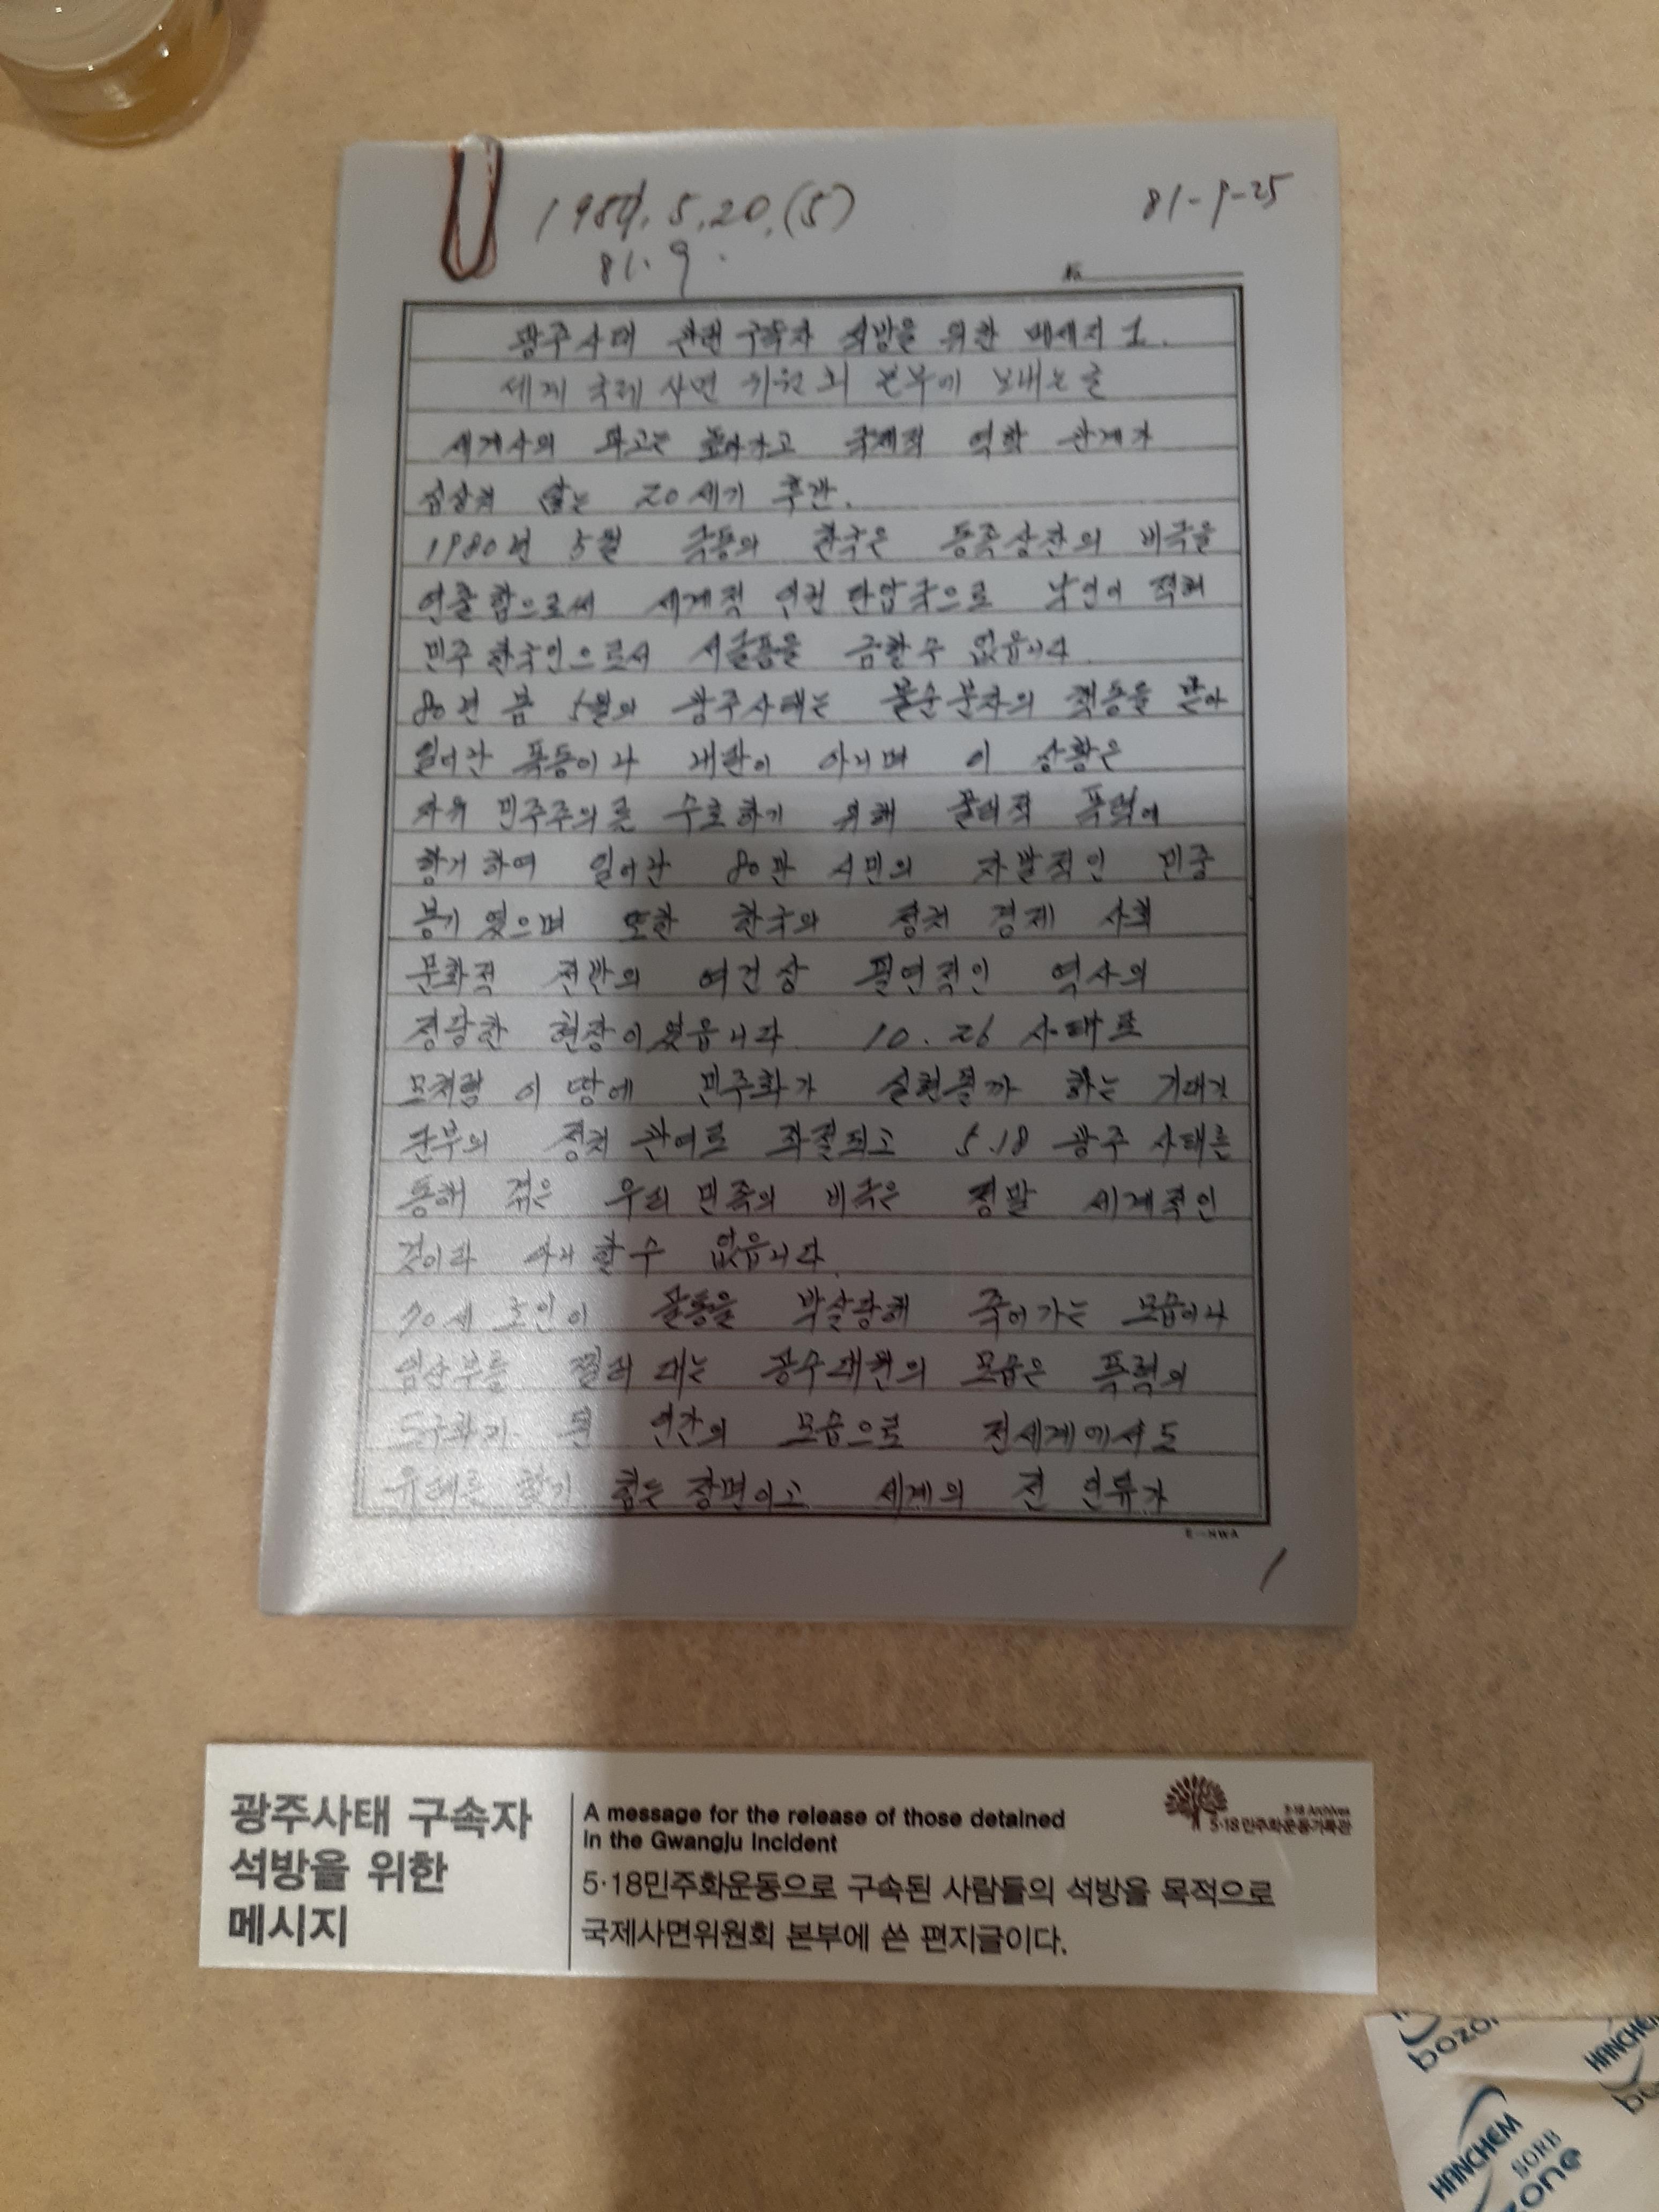 1981. 5. 20. (5)
81. 9.
81-9-25
№
광주사태 관련 구속자 석방을 위한 메세지 1.
세계 국제 사면 위원회 본부에 보내는 글
세계사의 파고는 높아가고 국제적 역학 관계가
심상치 않는 20세기 후반.
1980년 5월 극동의 한국은 동족상잔의 비극을
연출함으로써 세계적 인권 탄압국으로 낙인이 찍혀
민주 한국인으로서 서글픔을 금할 수 없읍니다.
80년 봄 5월의 광주사태는 불순분자의 책동을 받아
일어난 폭동이나 내란이 아니며 이 상황은
자유 민주주의를 수호하기 위해 물리적 폭력에
항거하여 일어난 80만 시민의 자발적인 민중
봉기였으며 또한 한국의 정치 경제 사회
문화적 전반의 여건상 필연적인 역사의
정당한 현장이었읍니다. 10.26 사태로
모처럼 이 땅에 민주화가 실현될까 하는 기대가
군부의 정치 관여로 좌절되고 5.18 광주 사태를
통해 겪은 우리 민족의 비극은 정말 세계적인
것이라 아니할 수 없읍니다.
70세 노인이 머리통을 박살당해 죽어가는 모습이나
임산부를 찔러 대는 공수대원의 모습은 폭력의
도구화가 된 인간의 모습으로 전세계에서도
유례를 찾기 힘든 장면이고 세계의 전 인류가
E-HWA
1
광주사태 구속자
석방을 위한
메시지
A message for the release of those detained
in the Gwangju Incident
5·18민주화운동으로 구속된 사람들의 석방을 목적으로
국제사면위원회 본부에 쓴 편지글이다.
5·18 Archives
5·18민주화운동기록관
HANCHEM
SORB
ozone